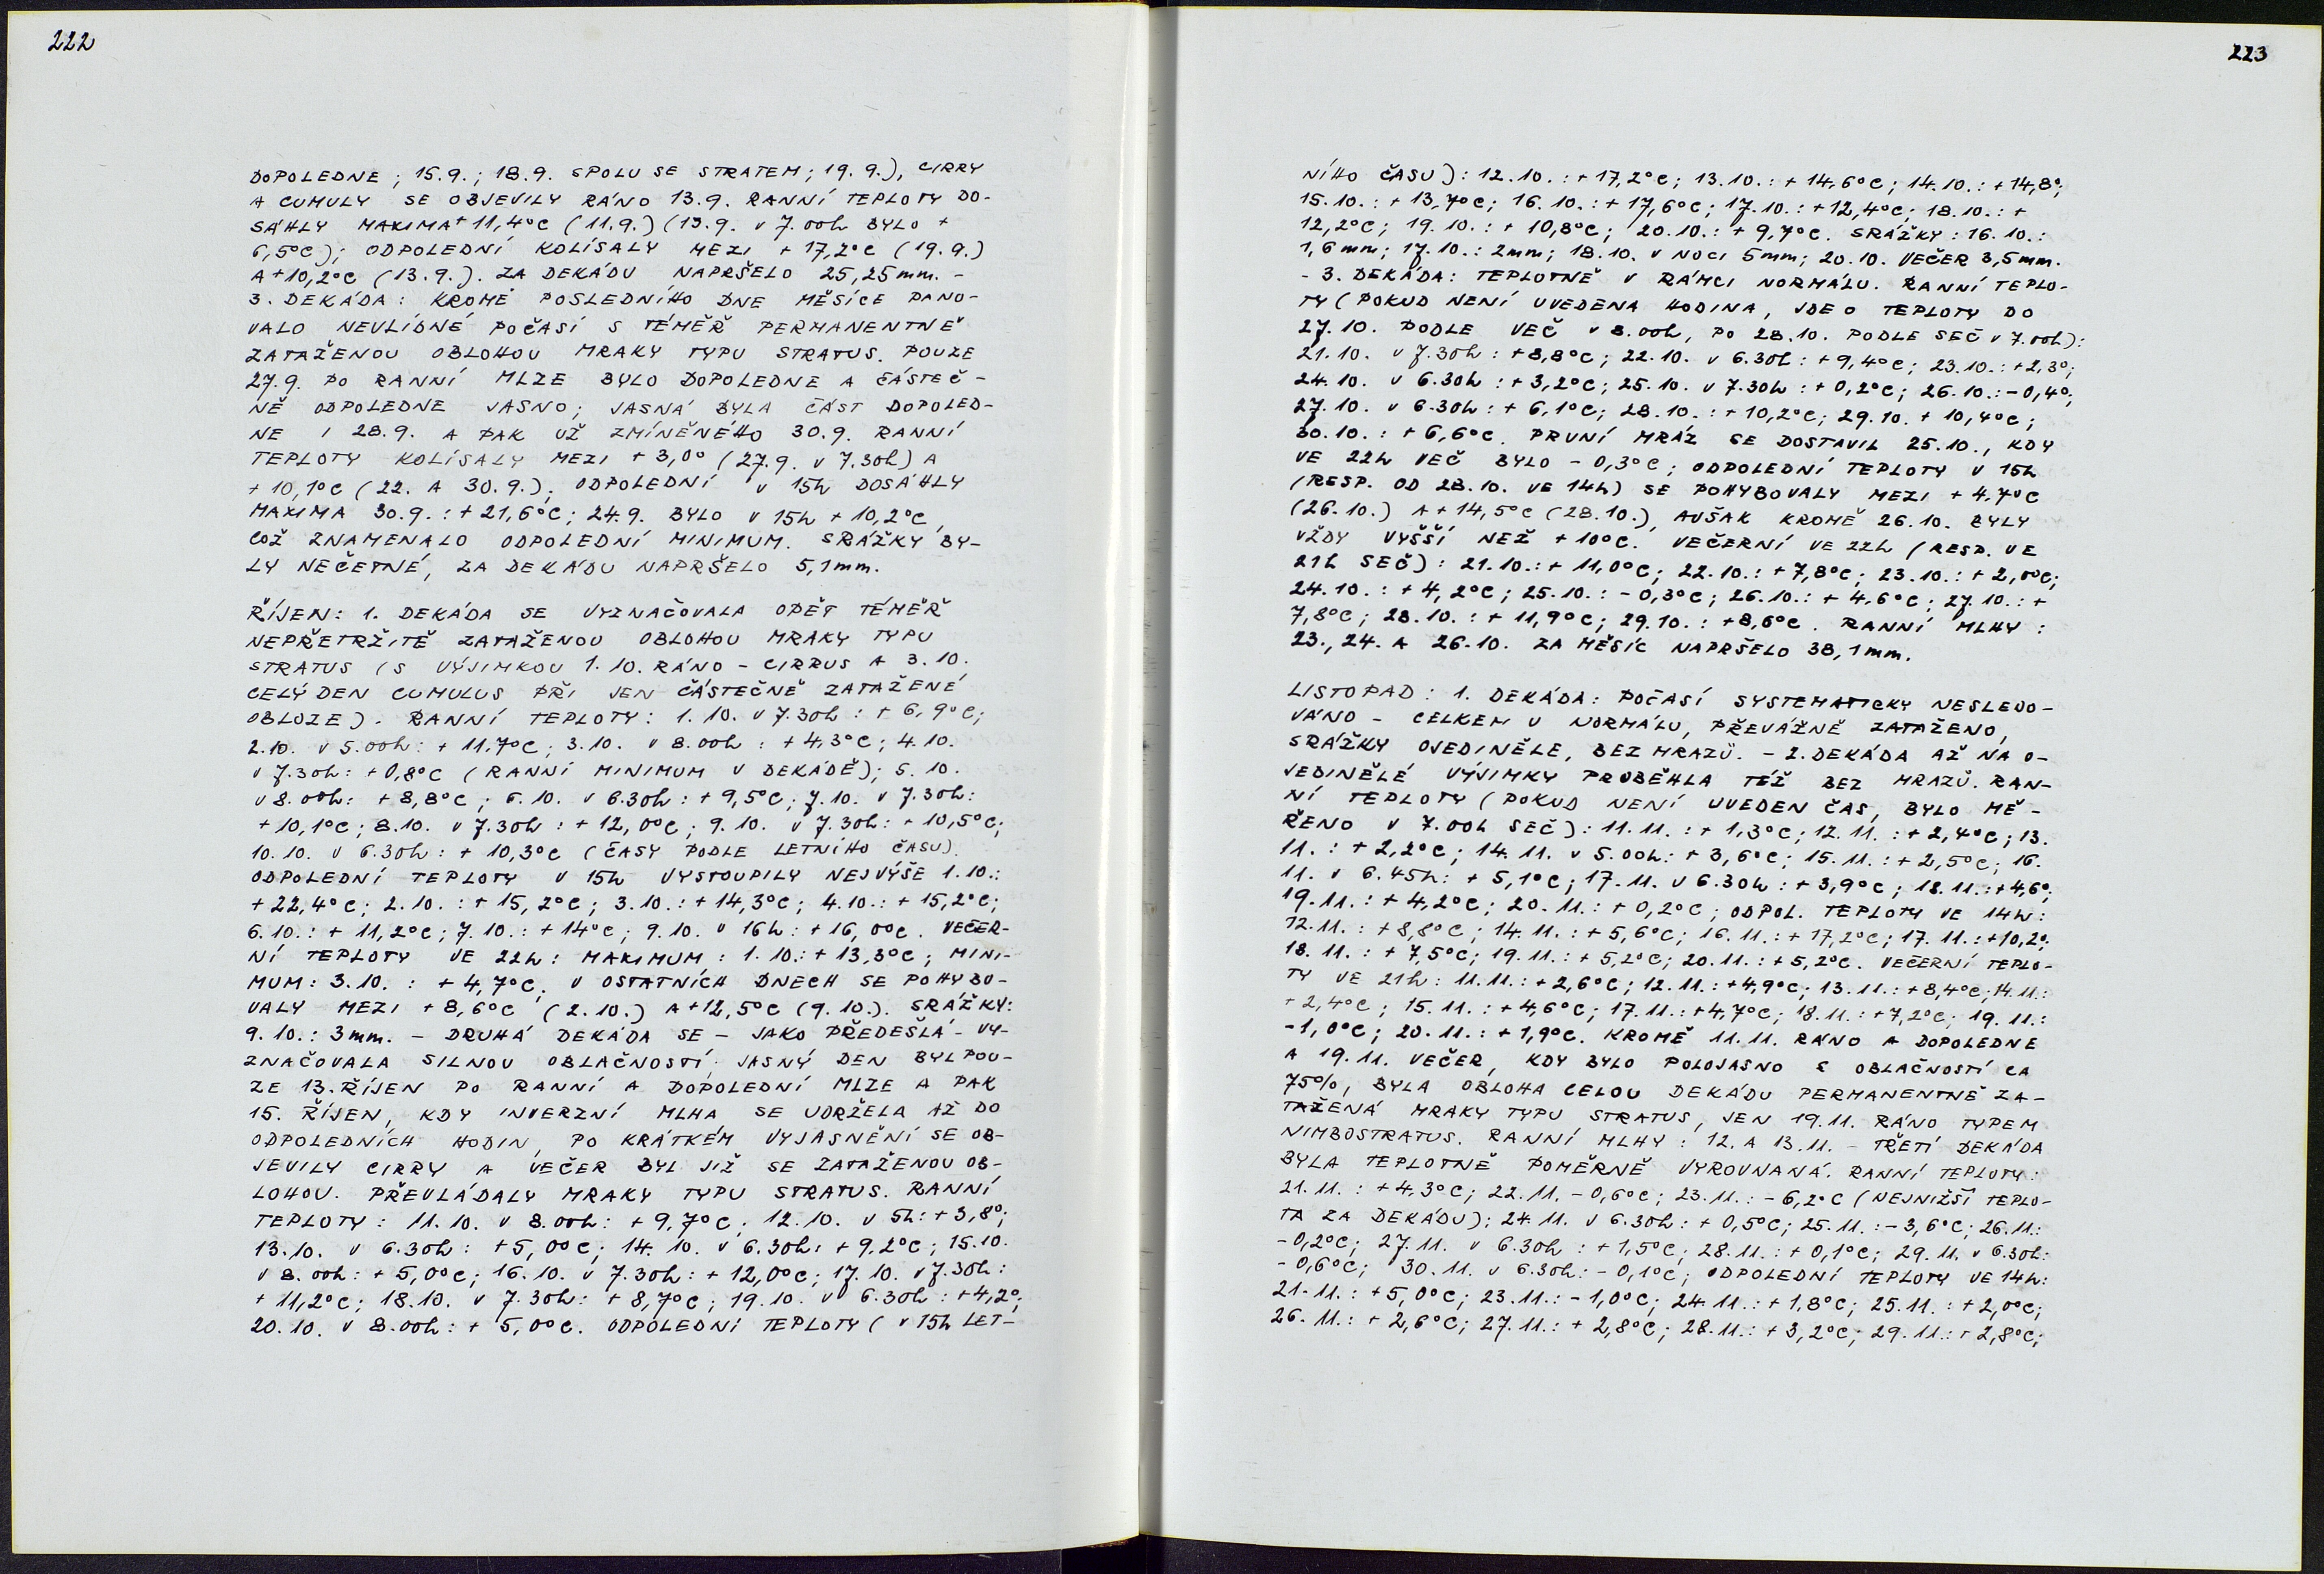 222
DOPOLEDNE ; 15.9. ; 18.9. SPOLU SE STRATEM ; 19. 9.), CIRRY
A CUMULY SE OBJEVILY RÁNO 13.9. RANNÍ TEPLOTY DO-
SÁHLY MAXIMA + 11,4°C (11.9.) (13.9. v 7.00h BYLO +
6,5°C); ODPOLEDNÍ KOLÍSALY MEZI + 17,2°C (19.9.)
A + 10,2°C (13.9.). ZA DEKÁDU NAPRŠELO 25,25 mm. -
3. DEKÁDA: KROMĚ POSLEDNÍHO DNE MĚSÍCE PANO-
VALO NEVLÍDNÉ POČASÍ S TÉMĚŘ PERMANENTNĚ
ZATAŽENOU OBLOHOU MRAKY TYPU STRATUS. POUZE
27.9. PO RANNÍ MLZE BYLO DOPOLEDNE A ČÁSTEČ-
NĚ ODPOLEDNE JASNO; JASNÁ BYLA ČÁST DOPOLED-
NE I 28.9. A PAK UŽ ZMÍNĚNÉHO 30.9. RANNÍ
TEPLOTY KOLÍSALY MEZI + 3,0° (27.9. v 7.30h) A
+ 10,1°C (22. A 30.9.); ODPOLEDNÍ v 15h DOSÁHLY
MAXIMA 30.9. : + 21,6°C; 24.9. BYLO v 15h + 10,2°C,
COŽ ZNAMENALO ODPOLEDNÍ MINIMUM. SRÁŽKY BY-
LY NEČETNÉ, ZA DEKÁDU NAPRŠELO 5,1 mm.
ŘÍJEN: 1. DEKÁDA SE VYZNAČOVALA OPĚT TÉMĚŘ
NEPŘETRŽITĚ ZATAŽENOU OBLOHOU MRAKY TYPU
STRATUS (S VÝJIMKOU 1.10. RÁNO - CIRRUS A 3.10.
CELÝ DEN CUMULUS PŘI JEN ČÁSTEČNĚ ZATAŽENÉ
OBLOZE). RANNÍ TEPLOTY: 1.10. v 7.30h : + 6,9°C;
2.10. v 5.00h: + 11,7°C; 3.10. v 8.00h : + 4,3°C; 4.10.
v 7.30h: + 0,8°C (RANNÍ MINIMUM V DEKÁDĚ); 5.10.
v 8.00h: + 8,8°C ; 6.10. v 6.30h : + 9,5°C; 7.10. v 7.30h:
+ 10,1°C; 8.10. v 7.30h : + 12,0°C; 9.10. v 7.30h: + 10,5°C;
10.10. v 6.30h: + 10,3°C (ČASY PODLE LETNÍHO ČASU).
ODPOLEDNÍ TEPLOTY v 15h VYSTOUPILY NEJVÝŠE 1.10.:
+ 22,4°C; 2.10. : + 15,2°C; 3.10.: + 14,3°C; 4.10.: + 15,2°C;
6.10.: + 11,2°C; 7.10.: + 14°C; 9.10. v 16h: + 16,0°C. VEČER-
NÍ TEPLOTY VE 22h: MAXIMUM: 1.10.: + 13,3°C; MINI-
MUM: 3.10. : + 4,7°C, V OSTATNÍCH DNECH SE POHYBO-
VALY MEZI + 8,6°C (2.10.) A + 12,5°C (9.10.). SRÁŽKY:
9.10.: 3 mm. - DRUHÁ DEKÁDA SE - JAKO PŘEDEŠLÁ - VY-
ZNAČOVALA SILNOU OBLAČNOSTÍ; JASNÝ DEN BYL POU-
ZE 13. ŘÍJEN PO RANNÍ A DOPOLEDNÍ MLZE A PAK
15. ŘÍJEN, KDY INVERZNÍ MLHA SE UDRŽELA AŽ DO
ODPOLEDNÍCH HODIN, PO KRÁTKÉM VYJASNĚNÍ SE OB-
JEVILY CIRRY A VEČER BYL JIŽ SE ZATAŽENOU OB-
LOHOU. PŘEVLÁDALY MRAKY TYPU STRATUS. RANNÍ
TEPLOTY: 11.10. v 8.00h: + 9,7°C; 12.10. v 5h: + 3,8°;
13.10. v 6.30h: + 5,0°C; 14.10. v 6.30h: + 9,2°C; 15.10.
v 8.00h: + 5,0°C; 16.10. v 7.30h: + 12,0°C; 17.10. v 7.30h:
+ 11,2°C; 18.10. v 7.30h: + 8,7°C; 19.10. v 6.30h: + 4,2°;
20.10. v 8.00h: + 5,0°C. ODPOLEDNÍ TEPLOTY ( v 15h LET-
223
NÍHO ČASU): 12.10. : + 17,2°C; 13.10. : + 14,6°C; 14.10. : + 14,8°;
15.10. : + 13,7°C; 16.10. : + 17,6°C; 17.10. : + 12,4°C; 18.10. : +
12,2°C; 19.10. : + 10,8°C; 20.10. : + 9,7°C. SRÁŽKY: 16.10. :
1,6 mm; 17.10. : 2mm; 18.10. V NOCI 5mm; 20.10. VEČER 3,5mm.
- 3. DEKÁDA: TEPLOTNĚ V RÁMCI NORMÁLU. RANNÍ TEPLO-
TY (POKUD NENÍ UVEDENA HODINA, JDE O TEPLOTY DO
27.10. PODLE VEČ v 8.00h, PO 28.10. PODLE SEČ v 7.00h):
21.10. v 7.30h: + 8,8°C; 22.10. v 6.30h: + 9,4°C; 23.10. : + 2,3°;
24.10. v 6.30h : + 3,2°C; 25.10. v 7.30h : + 0,2°C; 26.10. : - 0,4°;
27.10. v 6.30h: + 6,1°C; 28.10. : + 10,2°C; 29.10. + 10,4°C;
30.10. : + 6,6°C. PRVNÍ MRÁZ SE DOSTAVIL 25.10., KDY
VE 22h VEČ BYLO - 0,3°C; ODPOLEDNÍ TEPLOTY v 15h
(RESP. OD 28.10. VE 14h) SE POHYBOVALY MEZI + 4,7°C
(26.10.) A + 14,5°C (28.10.), AVŠAK KROMĚ 26.10. BYLY
VŽDY VYŠŠÍ NEŽ + 10°C. VEČERNÍ VE 22h (RESP. VE
21h SEČ): 21.10.: + 11,0°C; 22.10.: + 7,8°C; 23.10.: + 2,0°C;
24.10. : + 4,2°C; 25.10. : - 0,3°C; 26.10. : + 4,6°C; 27.10. : +
7,8°C; 28.10. : + 11,9°C; 29.10. : + 8,6°C. RANNÍ MLHY :
23., 24. A 26.10. ZA MĚSÍC NAPRŠELO 38,1 mm.
LISTOPAD : 1. DEKÁDA: POČASÍ SYSTEMATICKY NESLEDO-
VÁNO - CELKEM V NORMÁLU, PŘEVÁŽNĚ ZATAŽENO,
SRÁŽKY OJEDINĚLE, BEZ MRAZŮ. - 2. DEKÁDA AŽ NA O-
JEDINĚLÉ VÝJIMKY PROBĚHLA TÉŽ BEZ MRAZŮ. RAN-
NÍ TEPLOTY (POKUD NENÍ UVEDEN ČAS, BYLO MĚ-
ŘENO v 7.00h SEČ): 11.11. : + 1,3°C; 12.11. : + 2,4°C; 13.
11. : + 2,2°C; 14.11. v 5.00h: + 3,6°C; 15.11. : + 2,5°C; 16.
11. v 6.45h: + 5,1°C; 17.11. v 6.30h: + 3,9°C; 18.11. : + 4,6°;
19.11. : + 4,2°C; 20.11. : + 0,2°C; ODPOL. TEPLOTY VE 14h:
12.11. : + 8,8°C; 14.11. : + 5,6°C; 16.11. : + 17,2°C; 17.11. : +10,2°;
18.11. : + 7,5°C; 19.11. : + 5,2°C; 20.11. : + 5,2°C. VEČERNÍ TEPLO-
TY VE 21h: 11.11.: + 2,6°C; 12.11.: + 4,9°C; 13.11.: + 8,4°C; 14.11.:
+ 2,4°C; 15.11. : + 4,6°C; 17.11. : + 4,7°C; 18.11. : + 7,2°C; 19.11.:
- 1,0°C; 20.11. : + 1,9°C. KROMĚ 11.11. RÁNO A DOPOLEDNE
A 19.11. VEČER, KDY BYLO POLOJASNO S OBLAČNOSTÍ CA
75%, BYLA OBLOHA CELOU DEKÁDU PERMANENTNĚ ZA-
TAŽENÁ MRAKY TYPU STRATUS, JEN 19.11. RÁNO TYPEM
NIMBOSTRATUS. RANNÍ MLHY : 12. A 13.11. - TŘETÍ DEKÁDA
BYLA TEPLOTNĚ POMĚRNĚ VYROVNANÁ. RANNÍ TEPLOTY:
21.11. : + 4,3°C; 22.11. - 0,6°C; 23.11. : - 6,2°C (NEJNIŽŠÍ TEPLO-
TA ZA DEKÁDU); 24.11. v 6.30h: + 0,5°C; 25.11. : - 3,6°C; 26.11.:
- 0,2°C; 27.11. v 6.30h : + 1,5°C; 28.11. : + 0,1°C; 29.11. v 6.30h:
- 0,6°C; 30.11. v 6.30h: - 0,1°C; ODPOLEDNÍ TEPLOTY VE 14h:
21.11. : + 5,0°C; 23.11.: - 1,0°C; 24.11.: + 1,8°C; 25.11. : + 2,0°C;
26.11.: + 2,6°C; 27.11.: + 2,8°C; 28.11.: + 3,2°C; 29.11.: + 2,8°C;